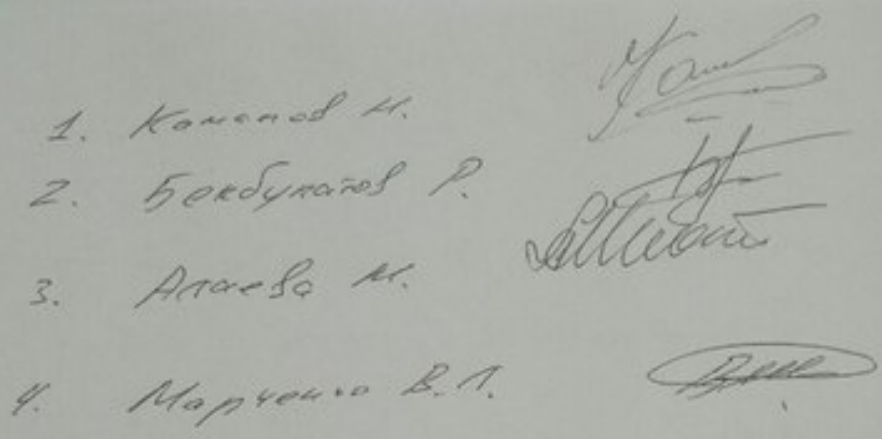 1. Каманов И.
2. Бекбулатов Р.
3. Алаева М.
4. Марченко В.Л.